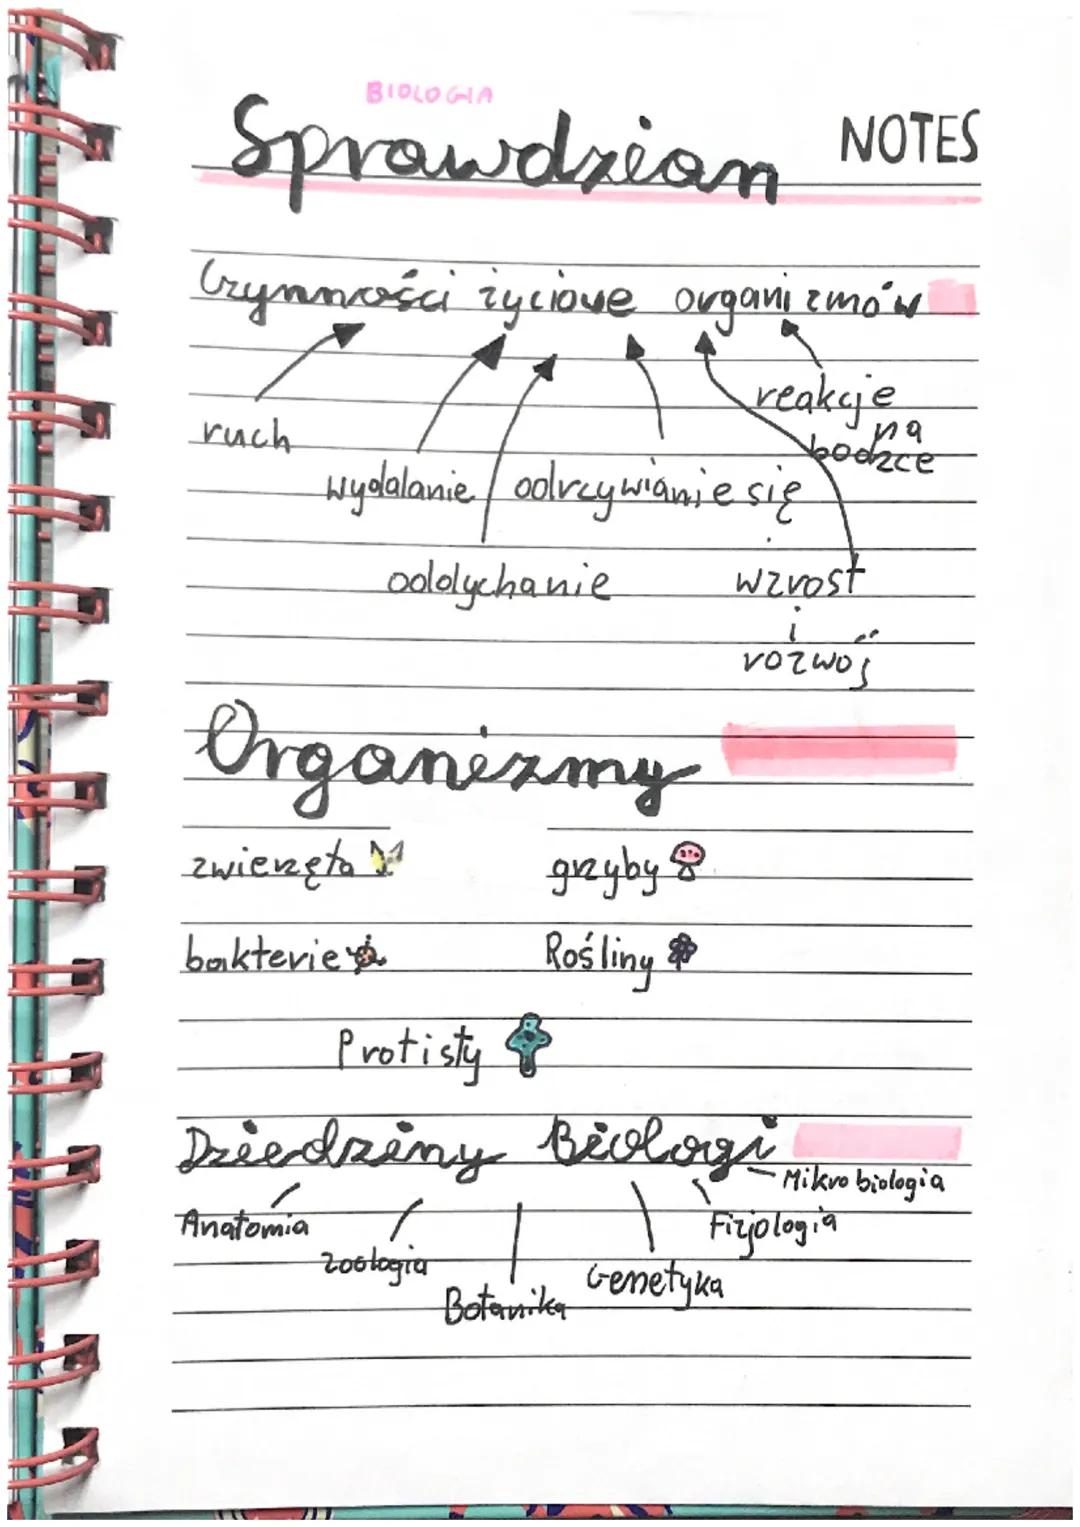 BIOLOGIA
Sprawdzian NOTES
Czynności życiowe organizmów
reakcje
na
bodźce
ruch
wydalanie odrzywianie się
oddychanie wzrost
i
rozwój
Organizmy
zwierzęta grzyby
bakterie Rośliny
Protisty
Dziedziny Biologi
Mikrobiologia
Anatomia Fizjologia
zoologia Genetyka
Botanika